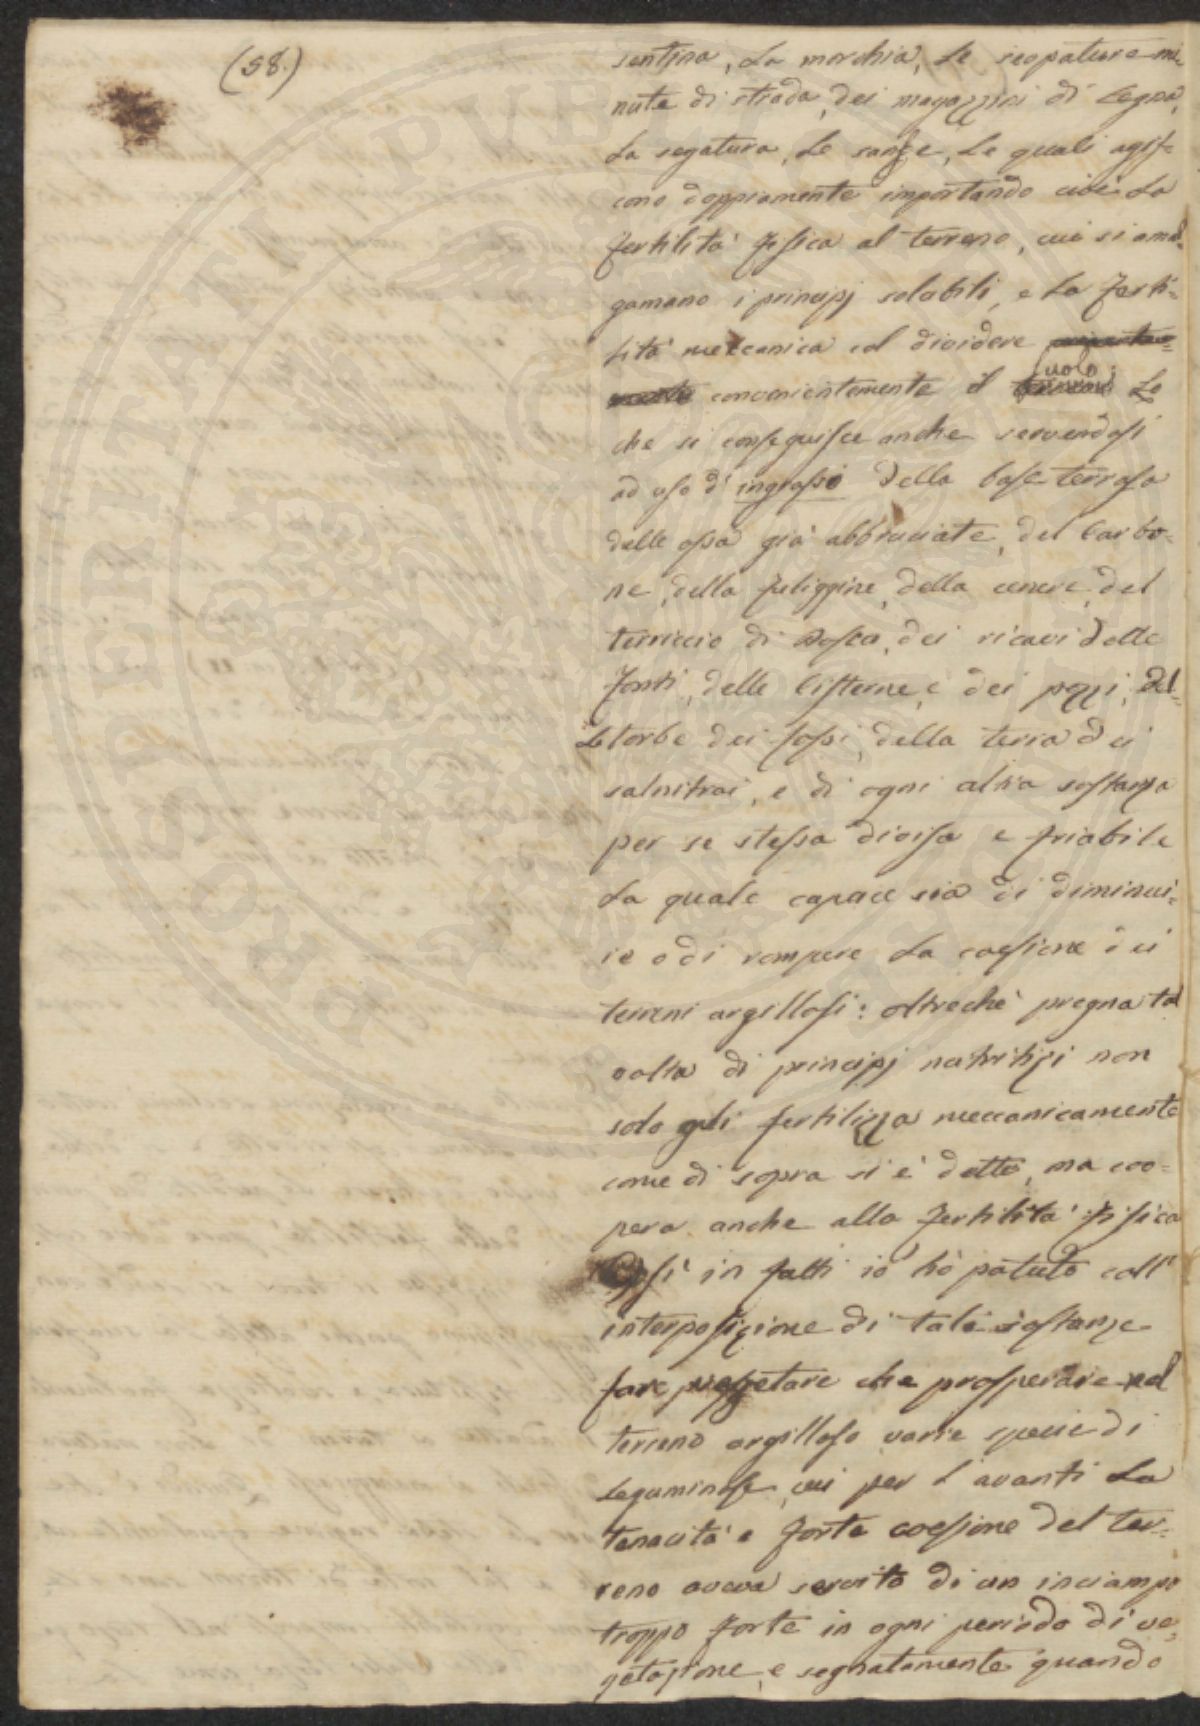 (58.)
sentina, La morchia, Le scopature mi-
nute di strada, dei magazzini di Legna,
La segatura, Le sanse, Le quali agis-
cono doppiamente importando cioè La
fertilità fisica al terreno, cui si amal-
gamano i principj solubili, e La ferti-
lità meccanica col dividere
convenientemente il suolo: Lo
che si conseguisce anche servendosi
ad uso d' ingrassi della base terrosa
delle ossa già abbruciate, del Carbo-
ne, della fuliggine, della cenere, del
terriccio di Bosco, dei ricavi delle
fonti, delle Cisterne, e dei pozzi, del-
Le torbe dei fossi, della terra dei
salnitrai, e di ogni altra sostanza
per se stessa divisa e friabile
La quale capace sia di diminui-
re o di rompere La coesione dei
terreni argillosi: oltreché pregna tal
volta di principj nutritizi non
solo gli fertilizza meccanicamente
come di sopra si è detto, ma coo-
pera anche alla fertilità fisica
Così in fatti io hò potuto coll'
interposizione di tali sostanze
fare vegetare che prosperare nel
terreno argilloso varie specie di
Leguminose, cui per L'avanti La
tenacità e forte coesione del ter-
reno aveva servito di un inciampo
troppo forte in ogni periodo di ve-
getazione, e segnatamente quando